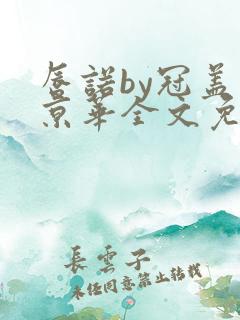 唇諾by冠盖
京华全文免
長雲子
未经同意禁止转载